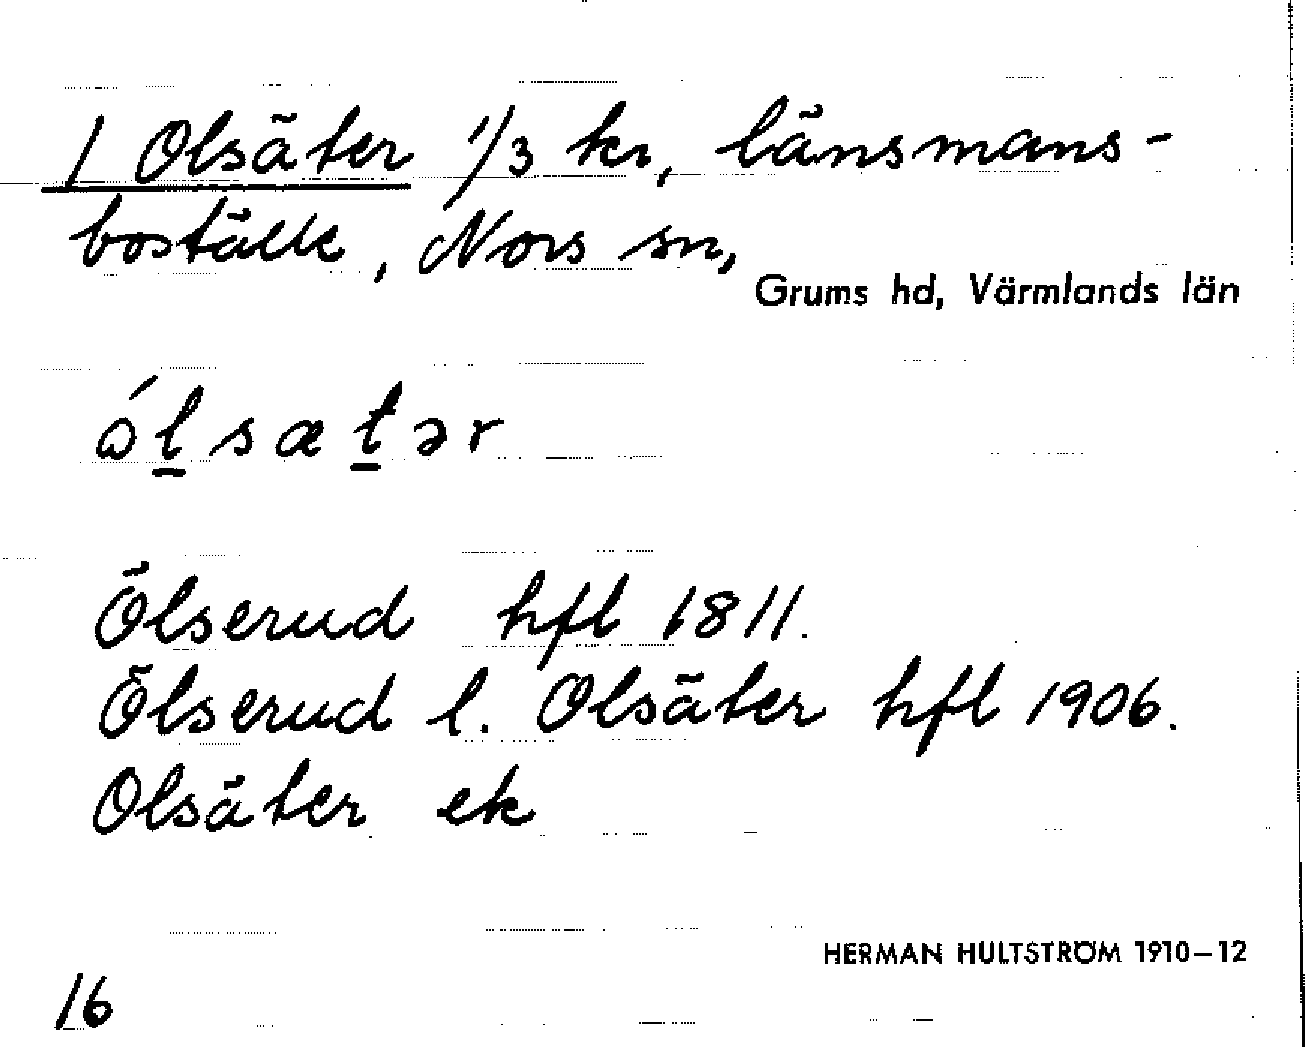 1 Olsäter 1/3 kr, länsmans-
boställe, Nors sn,
Grums hd, Värmlands län
ólsætər
Ölserud hfl 1811.
Ölserud l. Olsäter hfl 1906.
Olsäter ek
HERMAN HULTSTRÖM 1910–12
16